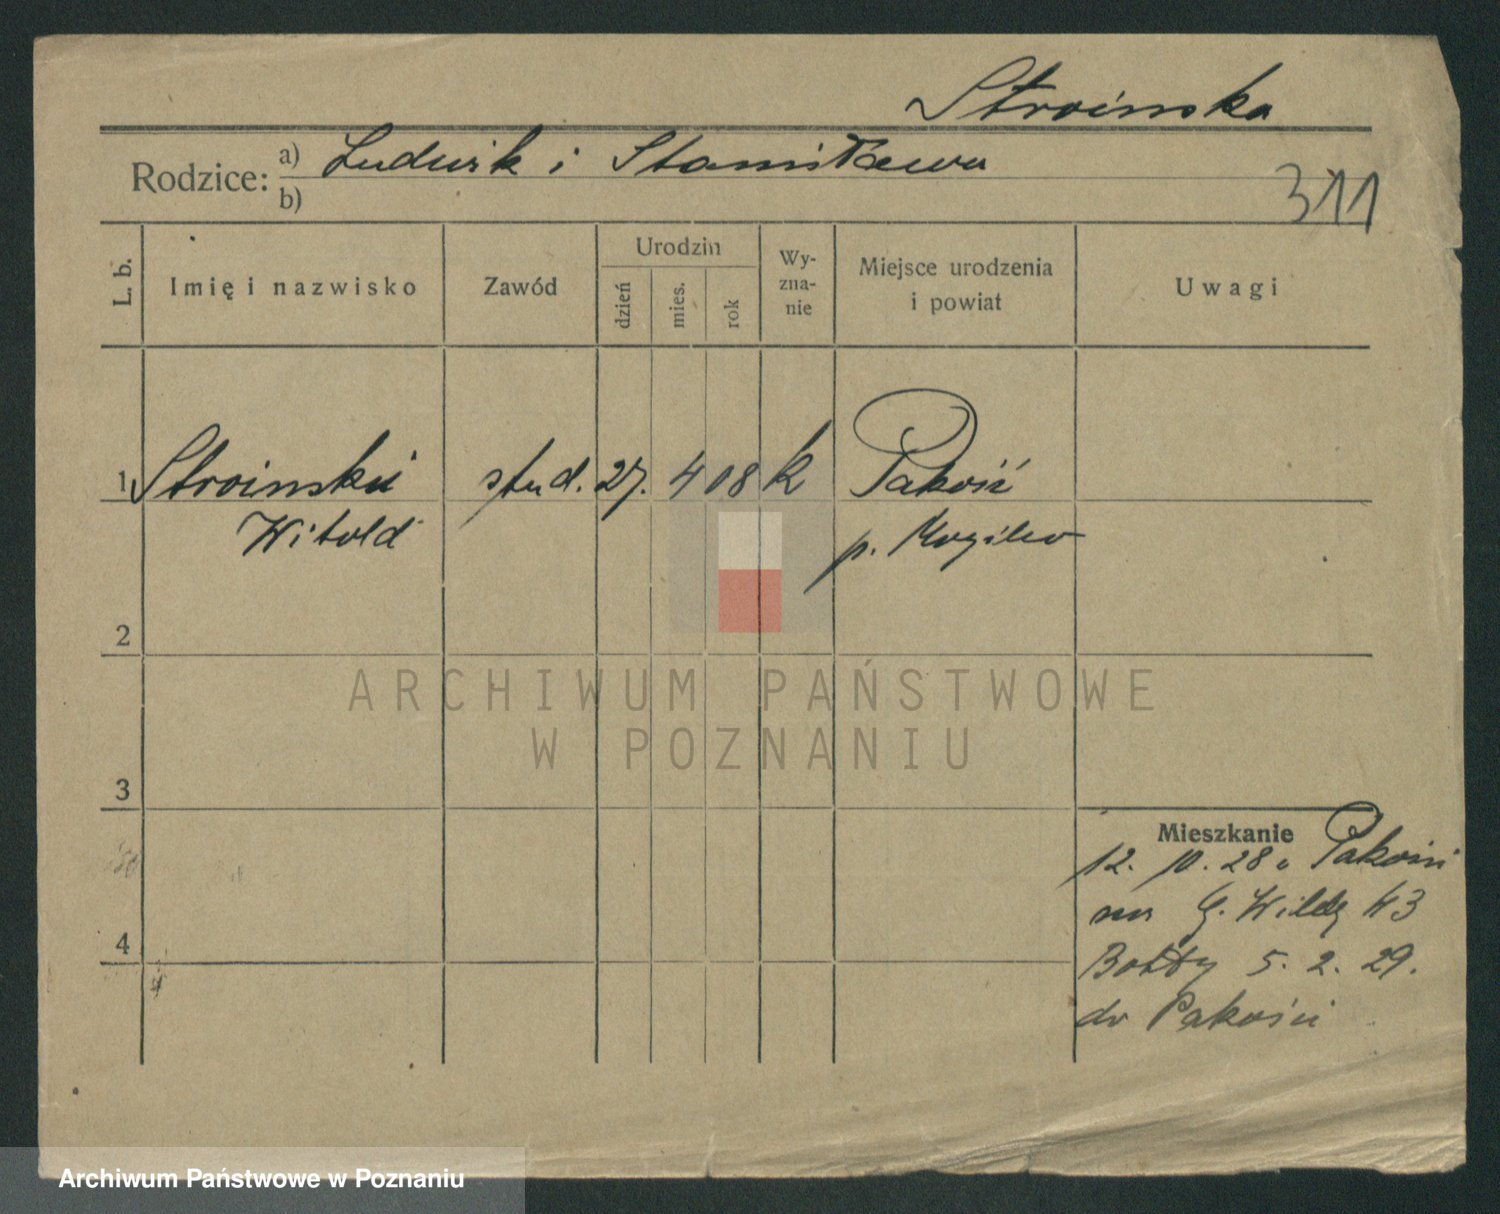 Stroinska
Rodzice: a) Ludwik i Stanisława
b)
311
L. b.
Imię i nazwisko
Zawód
Urodzin
dzień
mies.
rok
Wy-
zna-
nie
Miejsce urodzenia
i powiat
Uwagi
1 Stroinski stud. 27. 4 08 k Pakość
Witold p. Mogilno
2
3
4
Mieszkanie
12. 10. 28 z Pakości
na G. Wildę 43
5. 2. 29.
do Pakości
ARCHIWUM PAŃSTWOWE
W POZNANIU
Archiwum Państwowe w Poznaniu